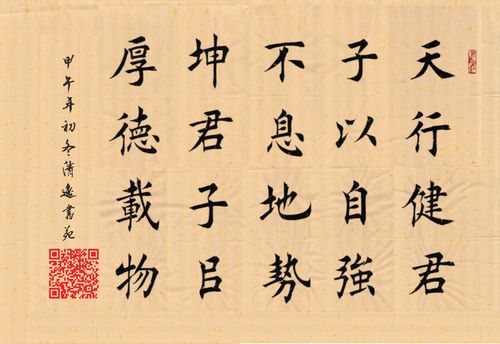 天行健君
子以自強
不息地勢
坤君子㠯
厚德載物
甲午年初冬逸書苑